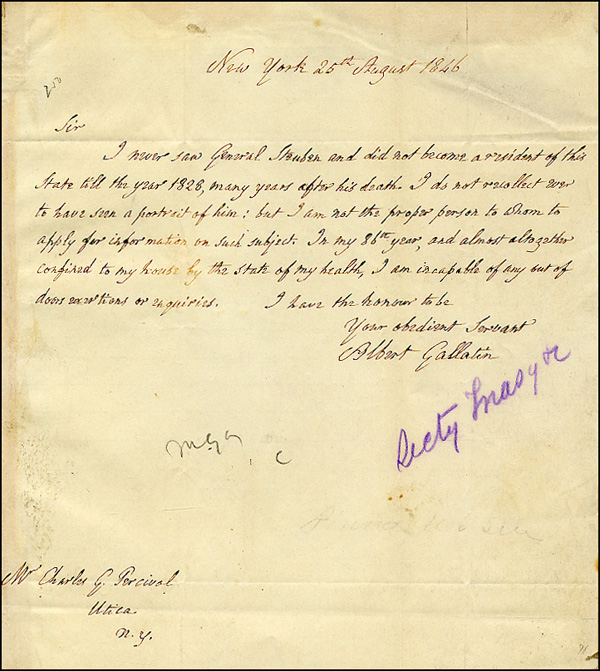 New York 25th August 1846
250
Sir
I never saw General Steuben and did not become a resident of this
State till the year 1828, many years after his death. I do not recollect ever
to have seen a portrait of him: but I am not the proper person to whom to
apply for information on such subject. In my 86th year, and almost altogether
confined to my house by the state of my health, I am incapable of any out of
doors exertions or enquiries. I have the honour to be
Your obedient Servant
Albert Gallatin
Secty Treasy
c
Mr Charles G. Percival
Utica
N. Y.